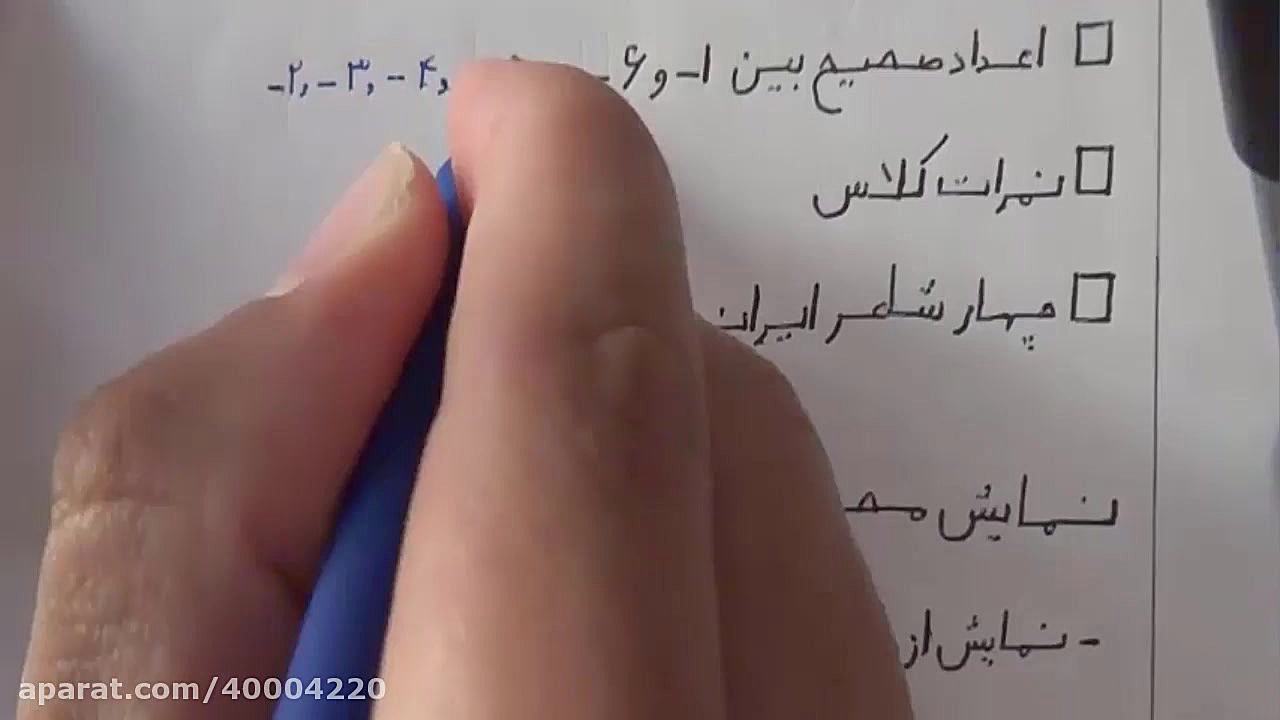 اعداد صحیح بین ۱- و ۶- -۲, -۳, -۴,
نمرات کلاس
چهار شاعر ایران
نمایش
- نمایش از
aparat.com/40004220